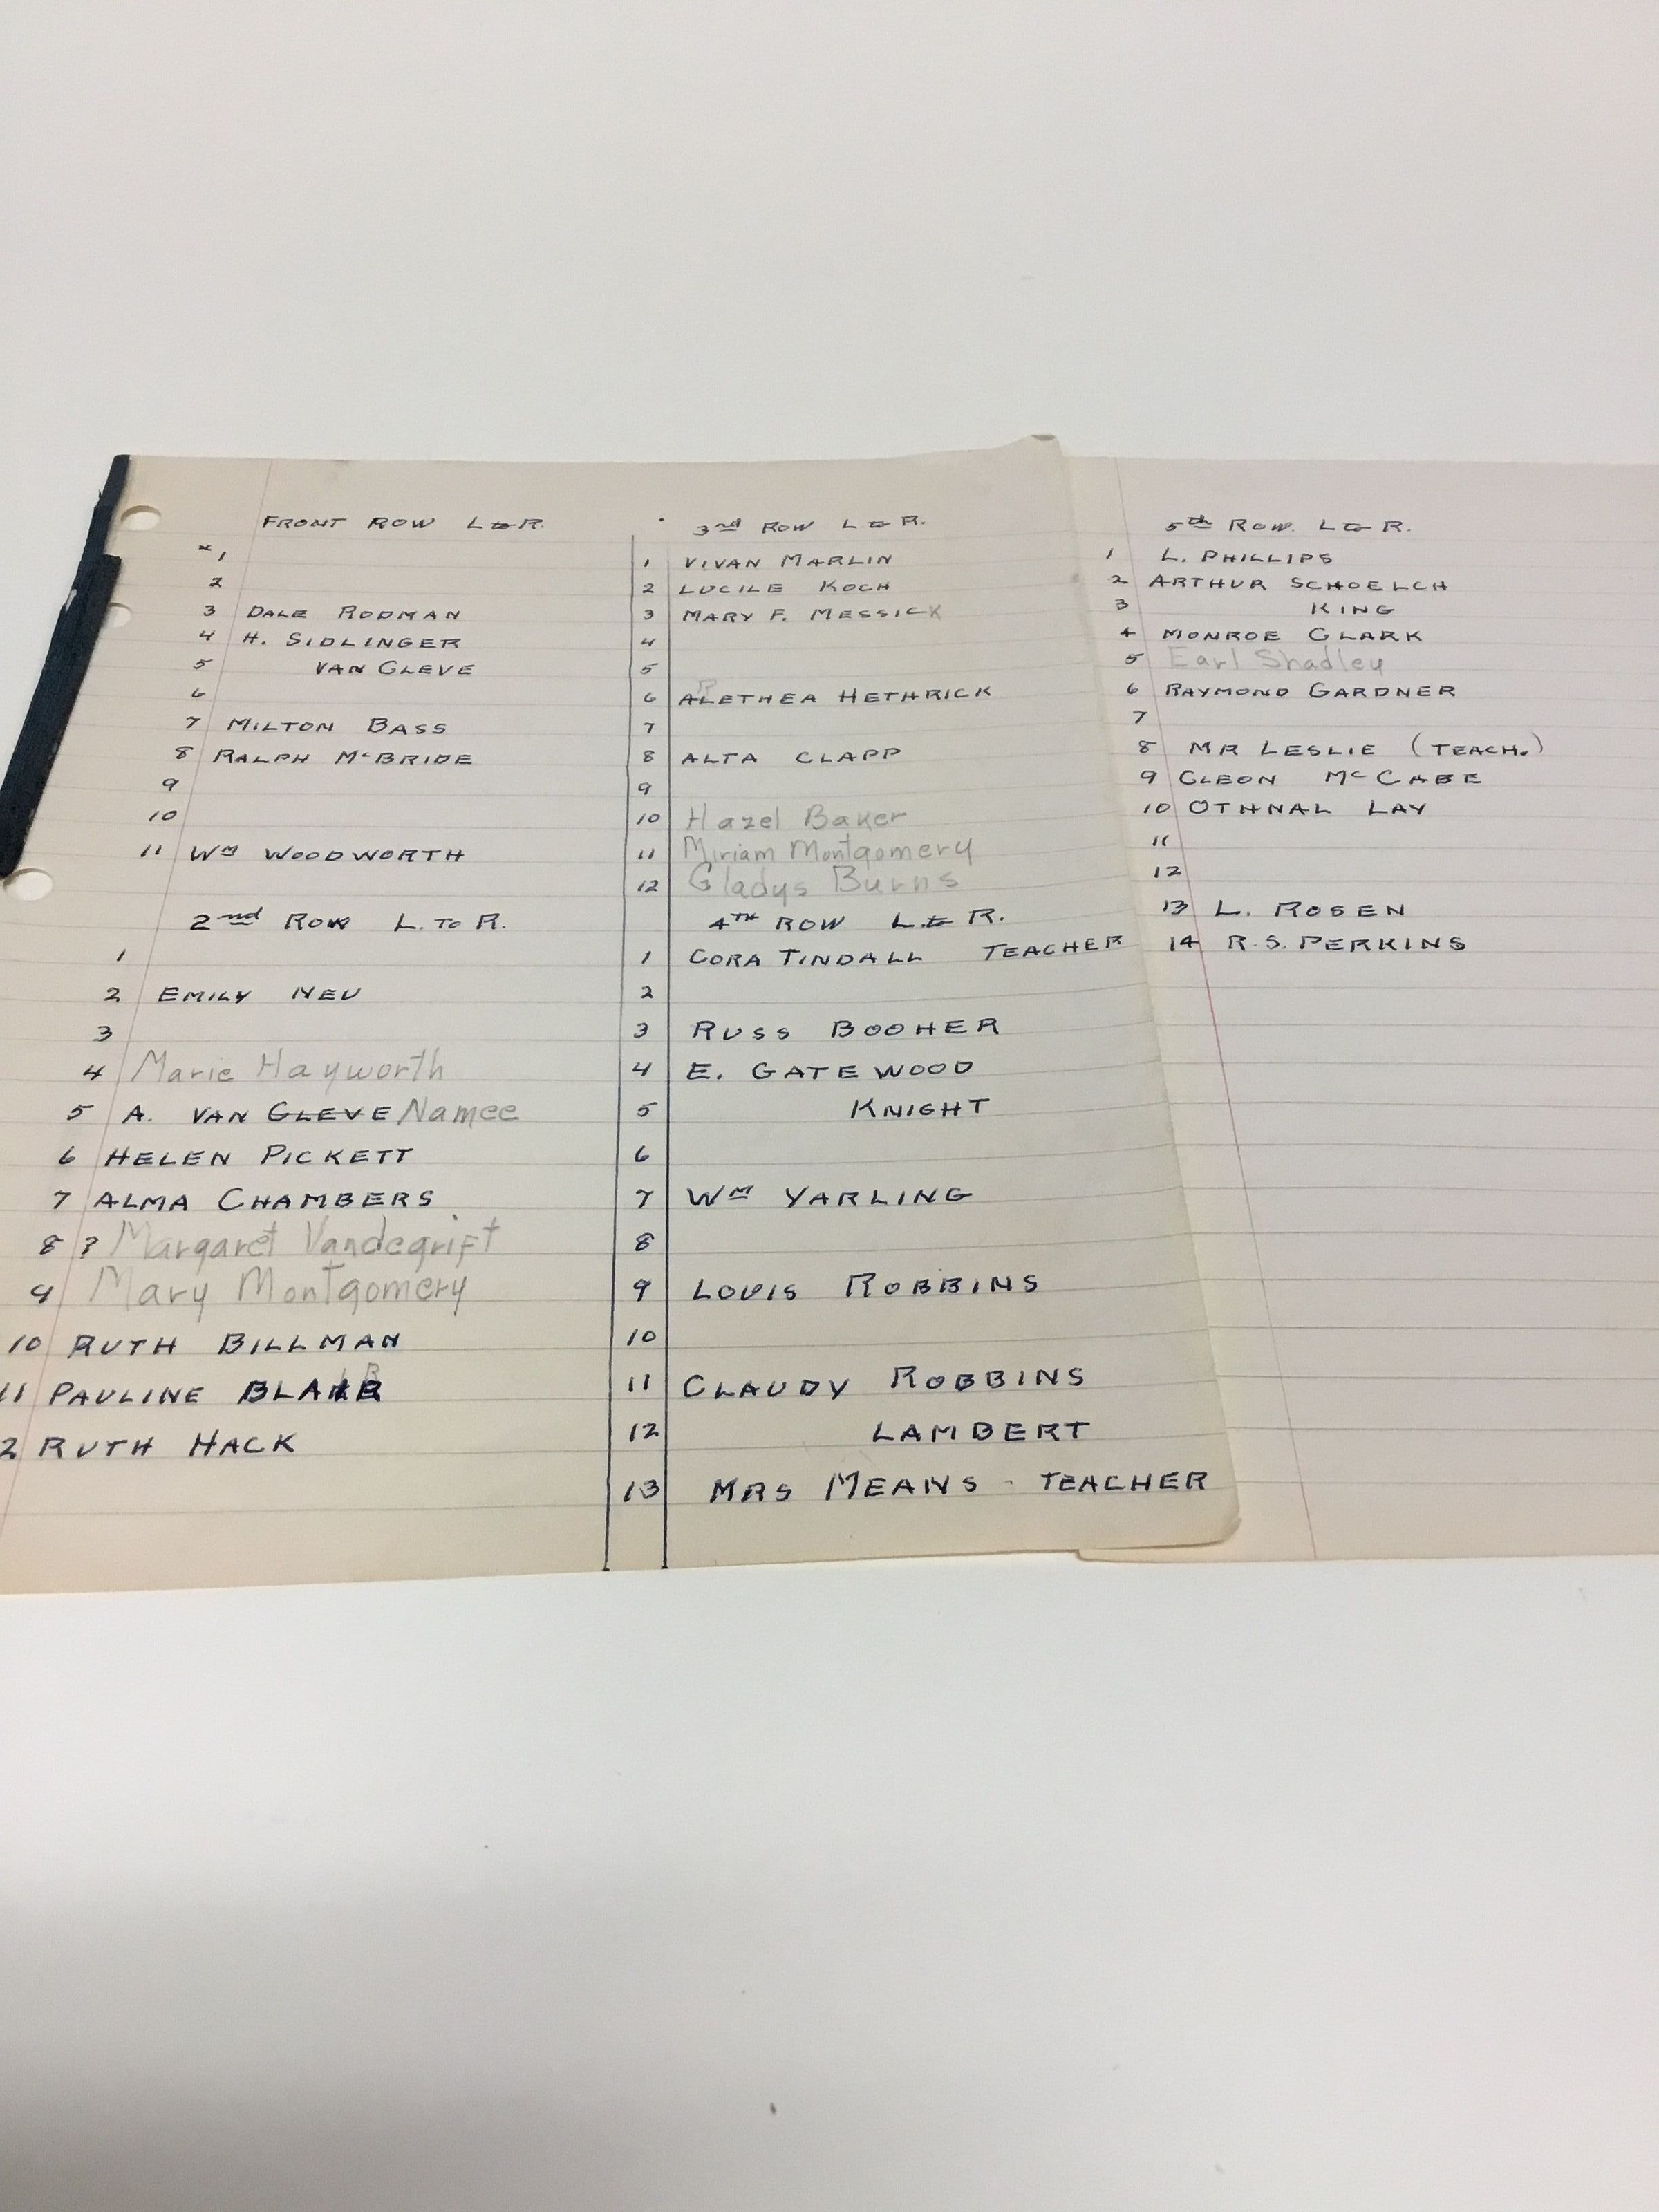 FRONT ROW L to R.
1
2
3 DALE RODMAN
4 H. SIDLINGER
5 VAN CLEVE
6
7 MILTON BASS
8 RALPH McBRIDE
9
10
11 Wm WOODWORTH
2nd ROW L. TO R.
1
2 EMILY NEU
3
4 Marie Hayworth
5 A. VAN CLEVE Namee
6 HELEN PICKETT
7 ALMA CHAMBERS
8 ? Margaret Vandegrift
9 Mary Montgomery
10 RUTH BILLMAN
11 PAULINE
2 RUTH HACK
3rd ROW L to R.
1 VIVAN MARLIN
2 LUCILE KOCH
3 MARY F. MESSICK
4
5
6 ALETHEA HETHRICK
7
8 ALTA CLAPP
9
10 Hazel Baker
11 Miriam Montgomery
12 Gladys Burns
4TH ROW L. to R.
1 CORA TINDALL TEACHER
2
3 RUSS BOOHER
4 E. GATEWOOD
5 KNIGHT
6
7 Wm YARLING
8
9 LOUIS ROBBINS
10
11 CLAUDY ROBBINS
12 LAMBERT
13 MRS MEANS - TEACHER
5th ROW. L to R.
1 L. PHILLIPS
2 ARTHUR SCHOELCH
3 KING
4 MONROE CLARK
5 Earl Shadley
6 RAYMOND GARDNER
7
8 MR LESLIE (TEACH.)
9 CLEON McCABE
10 OTHNAL LAY
11
12
13 L. ROSEN
14 R.S. PERKINS